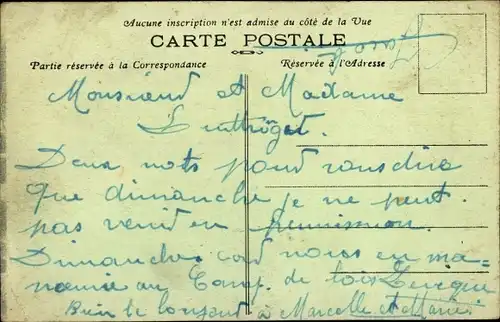 Aucune inscription n'est admise du côté de la Vue
CARTE POSTALE
Partie réservée à la Correspondance
Réservée à l'Adresse
Monsieud et Madame
Deux mots poud vous dire
que dimanche je ne peut
pas venid en permission.
Dimanche cad nous en ma-
noeuvre au Camp de
Bien le bonjour à Marcelle et Marie